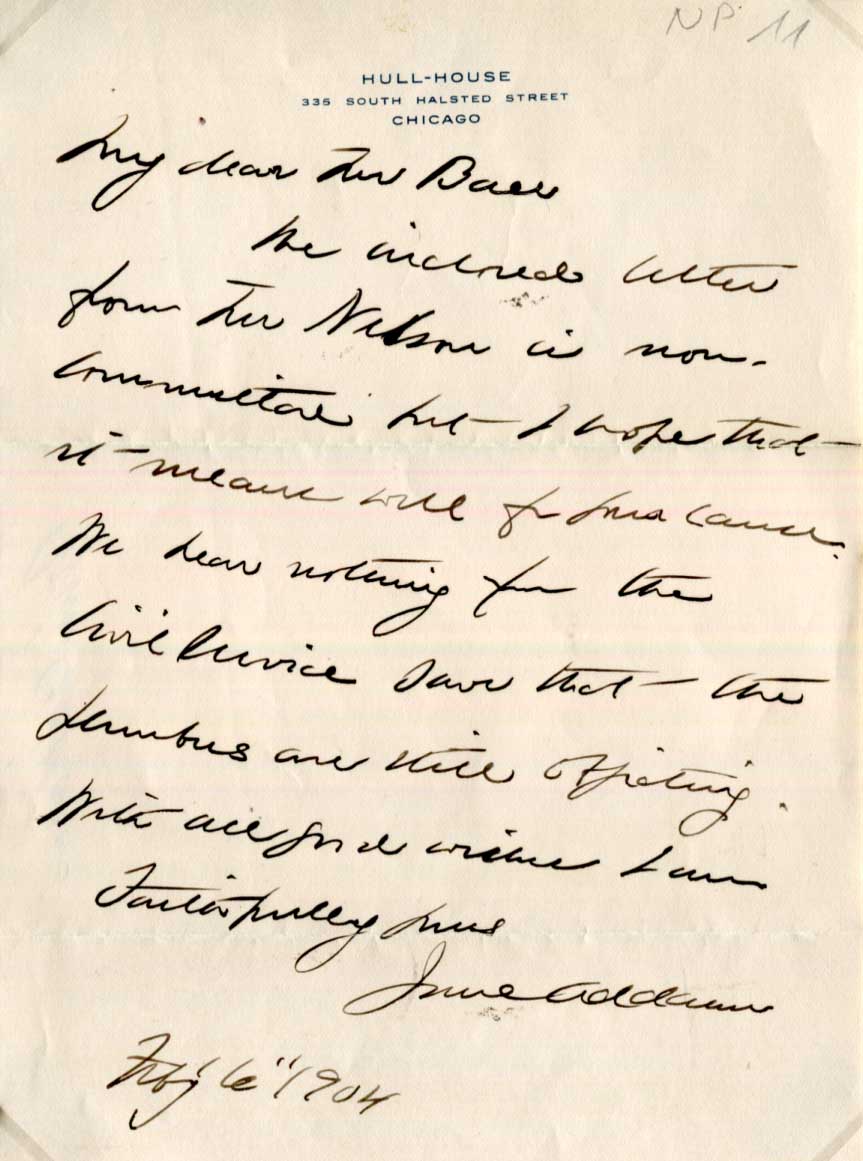 NP 11
HULL-HOUSE
335 SOUTH HALSTED STREET
CHICAGO
My dear Mr Baer
The inclosed letter
from Mr Nelson is non-
committal but I hope that
it means well for your cause.
We hear nothing from the
Civil Service save that the
are still
With all good wishes I am
Faithfully yours
Jane Addams
Feby 6" 1904